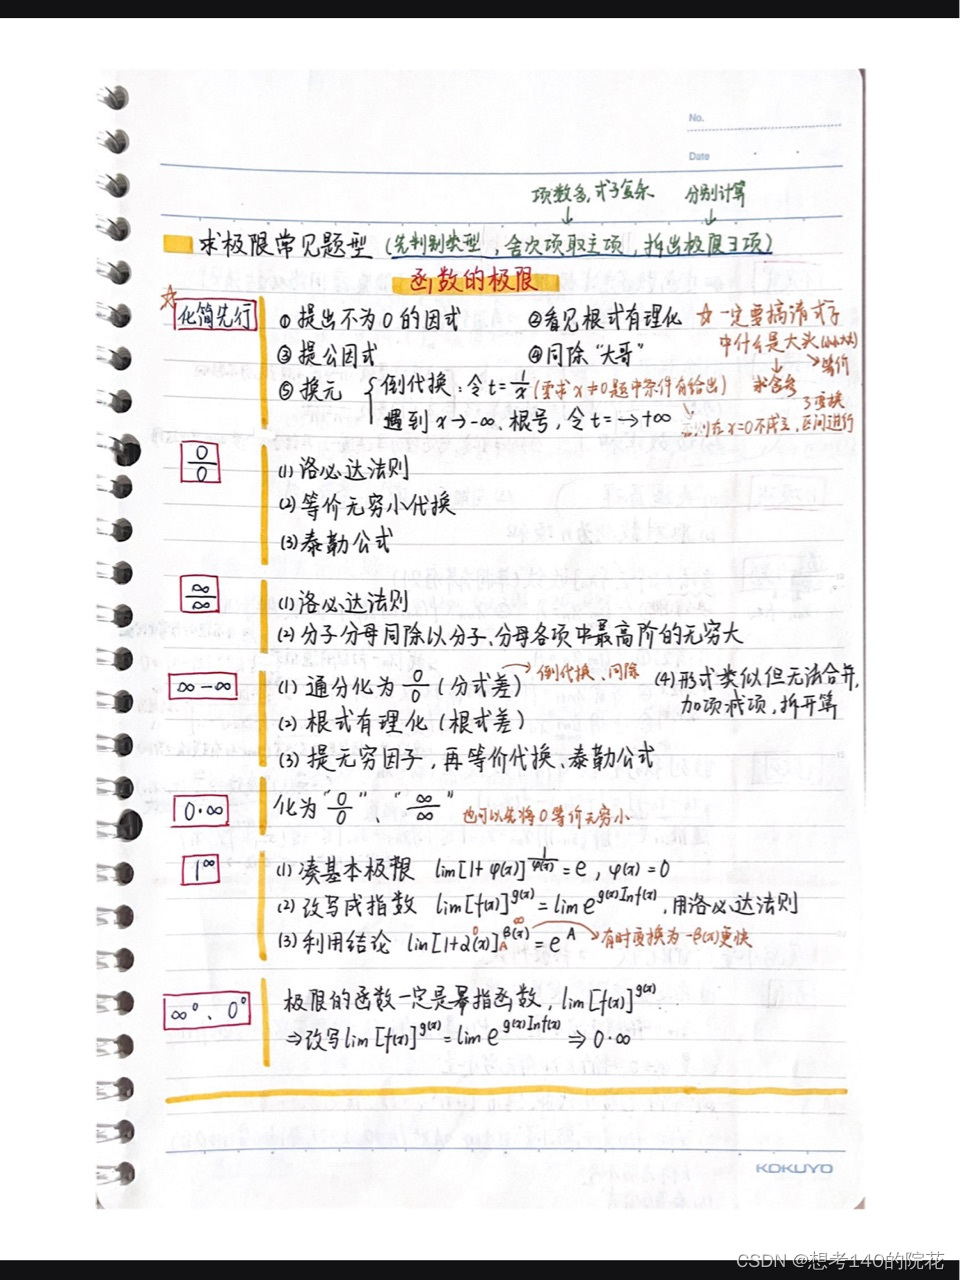 No.
Date
项数多,式子复杂 分别计算
求极限常见题型 (先判别类型,舍次项取主项,拆出极限3项)
函数的极限
☆ 化简先行 ① 提出不为0的因式 ② 看见根式有理化 ☆一定要搞清式子
中什么是大头
③ 提公因式 ④ 同除“大哥” 等价
⑤ 换元 { 倒代换:令t=1/x (要求x≠0题中条件有给出) 求谁考
遇到x→-∞、根号,令t=-→+∞ 否则在x=0不成立,区间进行
了变换
0/0 (1) 洛必达法则
(2) 等价无穷小代换
(3) 泰勒公式
∞/∞ (1) 洛必达法则
(2) 分子分母同除以分子、分母各项中最高阶的无穷大
∞-∞ (1) 通分化为 0/0 (分式差) 倒代换、同除 (4) 形式类似但无法合并,
加项减项,拆开算
(2) 根式有理化 (根式差)
(3) 提无穷因子,再等价代换、泰勒公式
0·∞ 化为“0/0” “∞/∞” 也可以先将0等价无穷小
1^∞ (1) 凑基本极限 lim[1+φ(x)]^(1/φ(x)) = e, φ(x)=0
(2) 改写成指数 lim[f(x)]^g(x) = lim e^(g(x)Inf(x)),用洛必达法则
(3) 利用结论 lim[1+2(x)]^β(x) = e^A 有时项换为-β(x)更快
0 ∞ A
∞⁰、0⁰ 极限的函数一定是幂指函数, lim[f(x)]^g(x)
⇒改写lim[f(x)]^g(x) = lim e^(g(x)Inf(x)) ⇒ 0·∞
KOKUYO
CSDN @想考140的院花